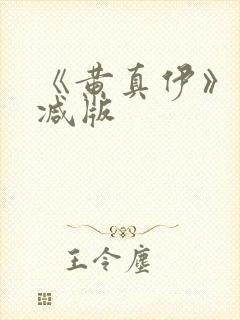 《黄真伊》
减版
王令尘